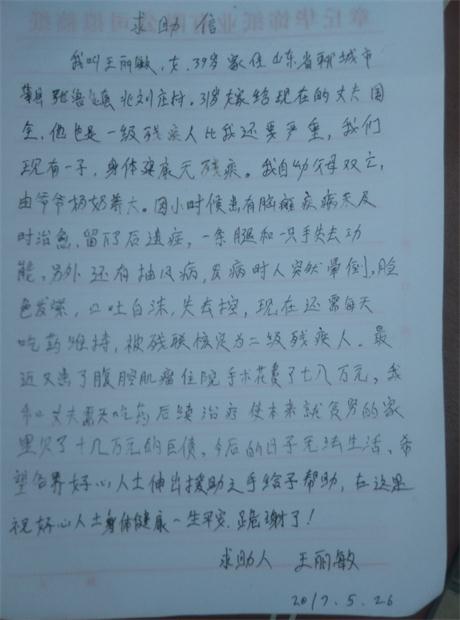 求助信
我叫王丽敏，女，39岁家住山东省聊城市
莘县张鲁镇北刘庄村。31岁嫁给现在的丈夫国
全，他也是一级残疾人比我还要严重，我们
现有一子，身体健康无残疾。我自幼父母双亡，
由爷爷奶奶养大。因小时候患有脑瘫疾病未及
时治愈，留下后遗症，一条腿和一只手失去功
能，另外还有抽风病，发病时人突然晕倒，脸
色发紫，口吐白沫，失去控，现在还需每天
吃药维持，被残联核定为二级残疾人。最
近又患了腹腔肌瘤住院手术花费了七八万元，我
和丈夫需天吃药后续治疗使本来就贫穷的家
里欠了十几万元的巨债，今后的日子无法生活、希
望各界好心人士伸出援助之手给予帮助，在这里
祝好心人士身体健康一生平安.跪谢了！
求助人 王丽敏
2017.5.26